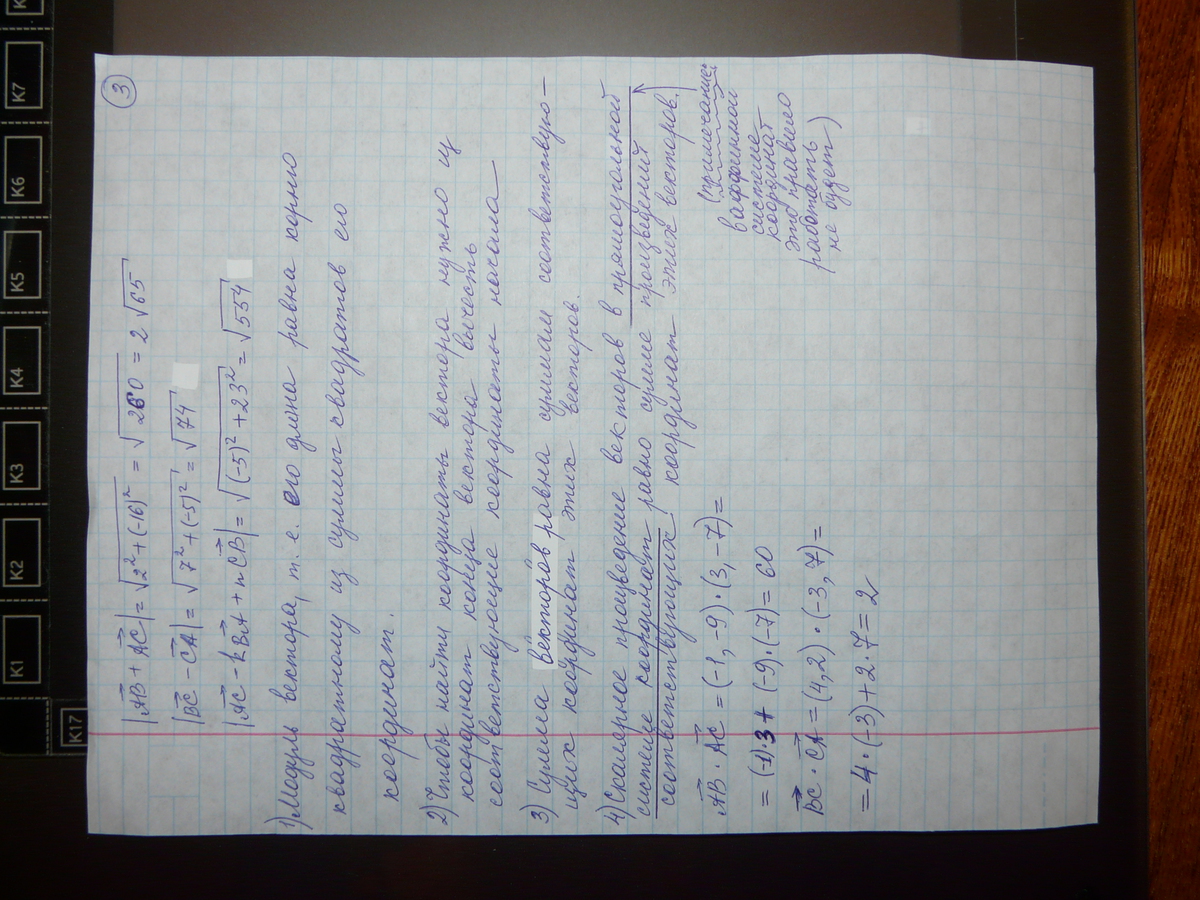 ③
|AB + AC| = √2² + (-16)² = √260 = 2√65
|BC - CA| = √7² + (-5)² = √74
|AC - kBA + nCB| = √(-5)² + 23² = √554
1) Модуль вектора, т.е. его длина равна корню
квадратному из суммы квадратов его
координат.
2) Чтобы найти координаты вектора нужно из
координат конца вектора вычесть
соответствующие координаты начала
3) Сумма векторов равна суммам соответствую-
щих координат этих векторов.
4) Скалярное произведение векторов в прямоугольной
системе координат равно сумме произведений
соответствующих координат этих векторов.
(примечание:
в аффинной
системе
координат
это правило
работать
не будет)
AB · AC = (-1, -9) · (3, -7) =
= (-1)·3 + (-9)·(-7) = 60
BC · CA = (4, 2) · (-3, 7) =
= 4·(-3) + 2·7 = 2
K17
K1
K2
K3
K4
K5
K6
K7